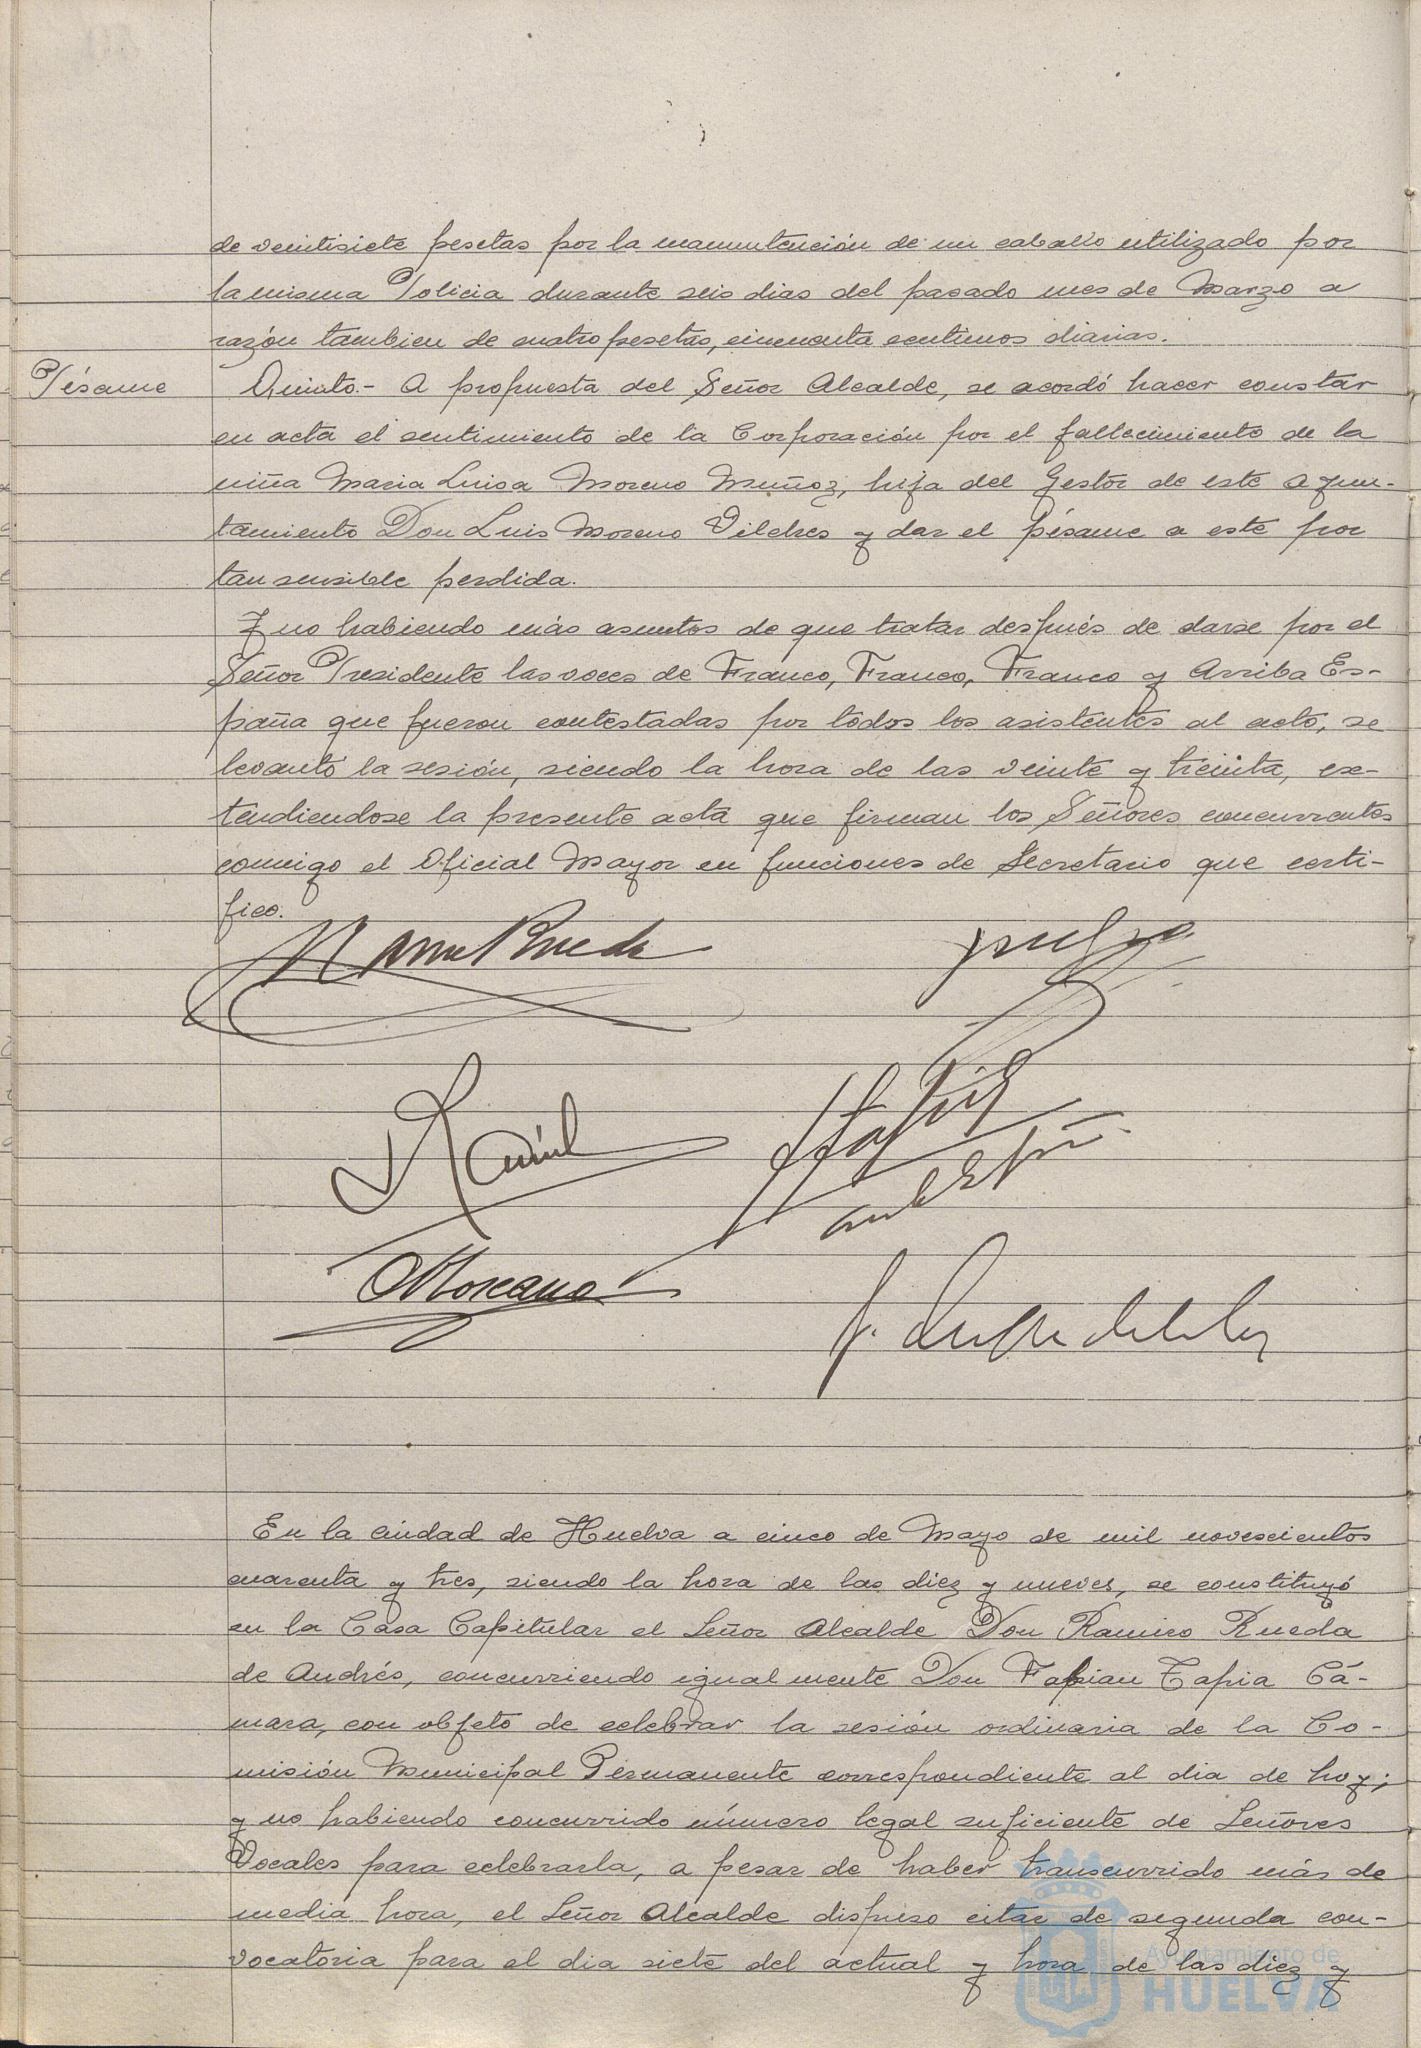 de veintisiete pesetas por la manuntención de un caballo utilizado por
la misma Policia durante seis dias del pasado mes de Marzo a
razón tambien de cuatro pesetas, cincuenta centimos diarias.
Pésame
Quinto.- A propuesta del Señor Alcalde, se acordó hacer constar
en acta el sentimiento de la Corporación por el fallecimiento de la
niña Maria Luisa Moreno Muñoz, hija del Gestor de este Ayun-
tamiento Don Luis Moreno Vilches y dar el pésame a este por
tan sensible perdida.
Y no habiendo más asuntos de que tratar después de darse por el
Señor Presidente las voces de Franco, Franco, Franco y Arriba Es-
paña que fueron contestadas por todos los asistentes al acto, se
levantó la sesión, siendo la hora de las veinte y treinta, ex-
tendiendose la presente acta que firman los Señores concurrentes
conmigo el Oficial Mayor en funciones de Secretario que certi-
fico.
En la ciudad de Huelva a cinco de Mayo de mil novescientos
cuarenta y tres, siendo la hora de las diez y nueves, se constituyó
en la Casa Capitular el Señor Alcalde Don Ramiro Rueda
de Andrés, concurriendo igualmente Don Fabian Tapia Cá-
mara, con objeto de celebrar la sesión ordinaria de la Co-
misión Municipal Permanente correspondiente al dia de hoy;
y no habiendo concurrido número legal suficiente de Señores
Vocales para celebrarla, a pesar de haber transcurrido más de
media hora, el Señor Alcalde dispuso citar de segunda con-
vocatoria para el dia siete del actual y hora de las diez y
Ayuntamiento de
HUELVA